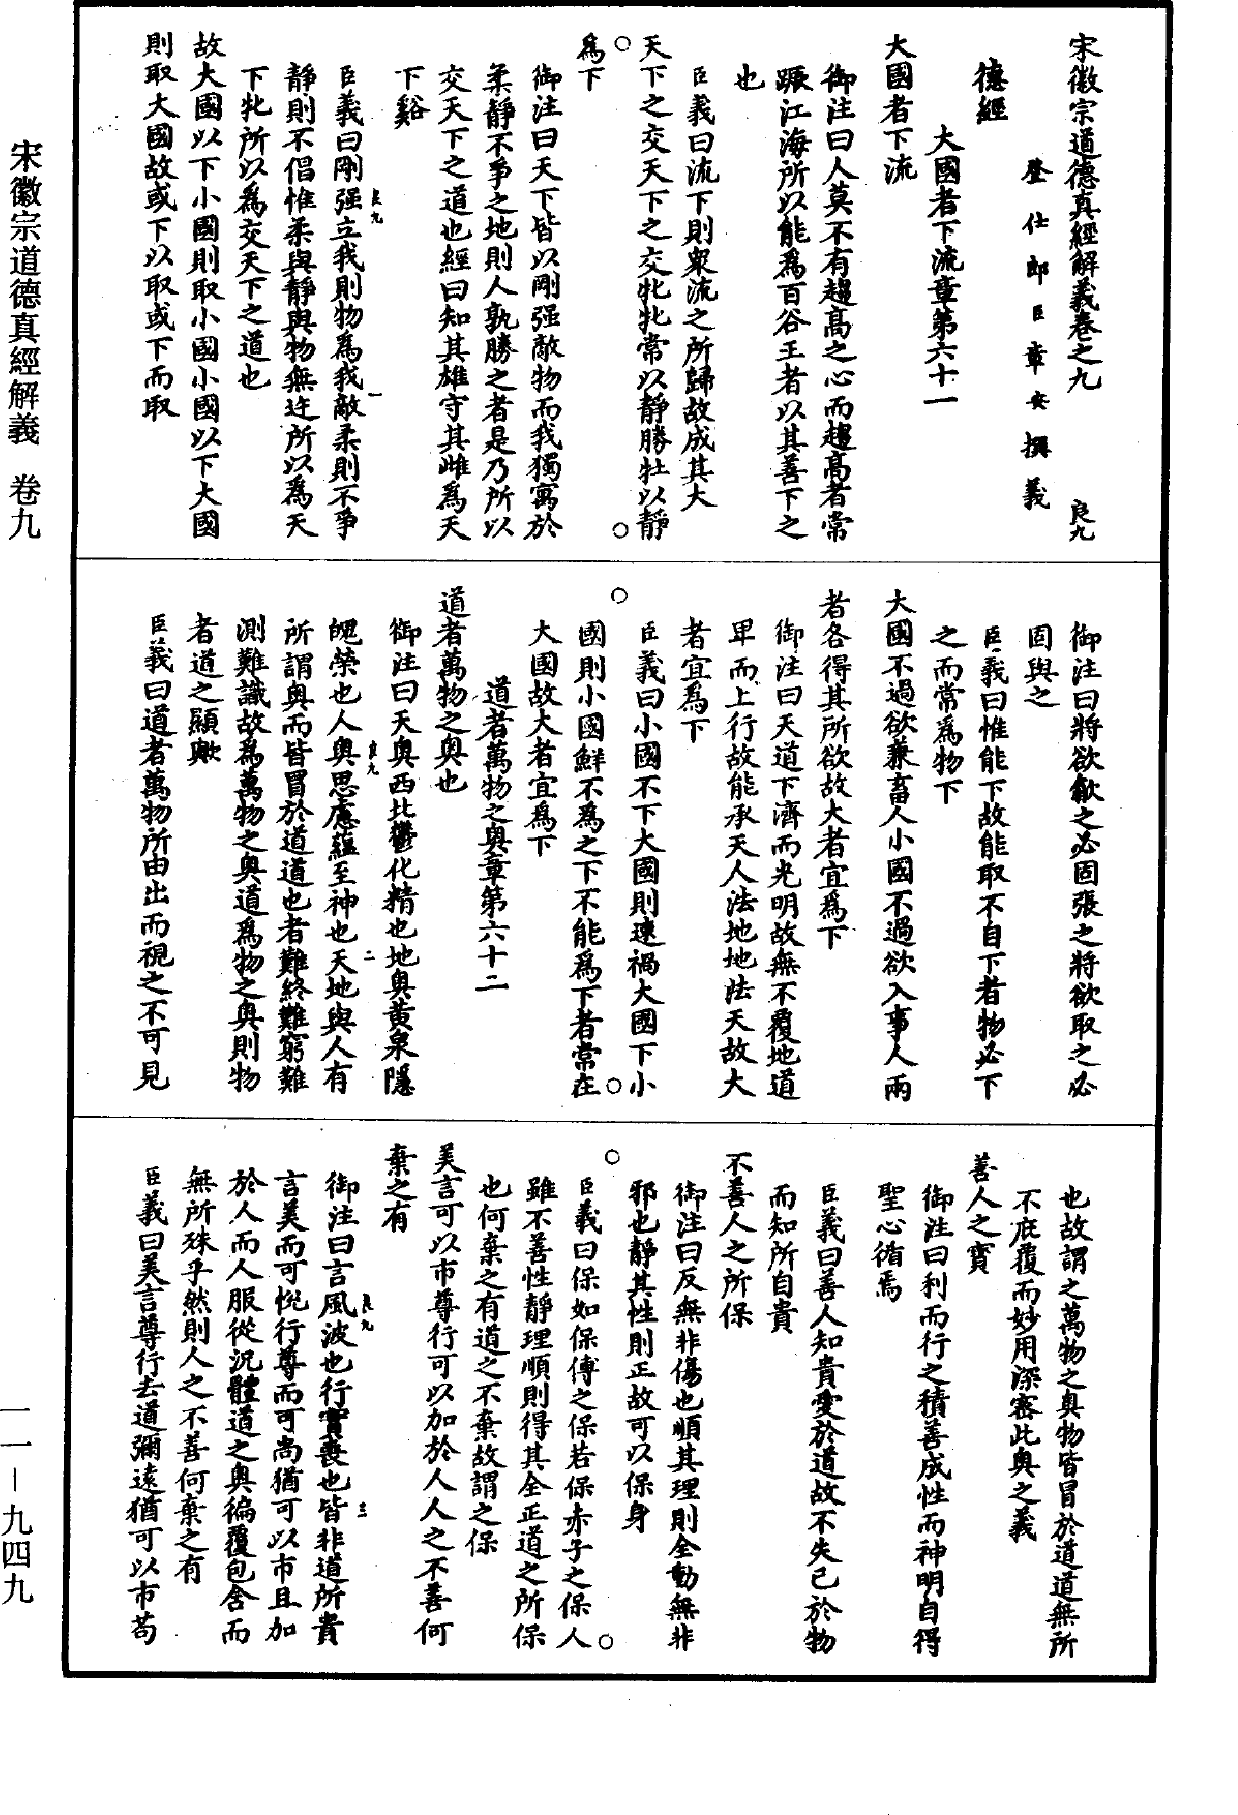 宋徽宗道德真經解義卷之九 良九
登仕郎臣章安撰義
德經
大國者下流章第六十一
大國者下流
御注曰人莫不有趨高之心而趨高者常
蹶江海所以能為百谷王者以其善下之
也
臣義曰流下則衆流之所歸故成其大
天下之交天下之交牝牝常以靜勝牡以靜
為下
御注曰天下皆以剛強敵物而我獨寓於
柔靜不爭之地則人孰勝之者是乃所以
交天下之道也經曰知其雄守其雌為天
下谿
臣義曰剛強立我則物為我敵柔則不爭
靜則不倡惟柔與靜與物無迕所以為天
下牝所以為交天下之道也
故大國以下小國則取小國小國以下大國
則取大國故或下以取或下而取
良九 一
御注曰將欲歙之必固張之將欲取之必
固與之
臣義曰惟能下故能取不自下者物必下
之而常為物下
大國不過欲兼畜人小國不過欲入事人兩
者各得其所欲故大者宜為下
御注曰天道下濟而光明故無不覆地道
卑而上行故能承天人法地地法天故大
者宜為下
臣義曰小國不下大國則速禍大國下小
國則小國鮮不為之下不能為下者常在
大國故大者宜為下
道者萬物之奧章第六十二
道者萬物之奧也
御注曰天奧西北鬱化精也地奧黃泉隱
魄榮也人奧思慮蘊至神也天地與人有
所謂奧而皆冒於道道也者難終難窮難
測難識故為萬物之奧道為物之奧則物
者道之顯歟
臣義曰道者萬物所由出而視之不可見
良九 二
也故謂之萬物之奧物皆冒於道道無所
不庇覆而妙用深密此奧之義
善人之寶
御注曰利而行之積善成性而神明自得
聖心循焉
臣義曰善人知貴愛於道故不失己於物
而知所自貴
不善人之所保
御注曰反無非傷也順其理則全動無非
邪也靜其性則正故可以保身
臣義曰保如保傅之保若保赤子之保人
雖不善性靜理順則得其全正道之所保
也何棄之有道之不棄故謂之保
美言可以市尊行可以加於人人之不善何
棄之有
御注曰言風波也行實喪也皆非道所貴
言美而可悅行尊而可尚猶可以市且加
於人而人服從況體道之奧徧覆包含而
無所殊乎然則人之不善何棄之有
臣義曰美言尊行去道彌遠猶可以市苟
良九 三
宋徽宗道德真經解義 卷九
一一－九四九